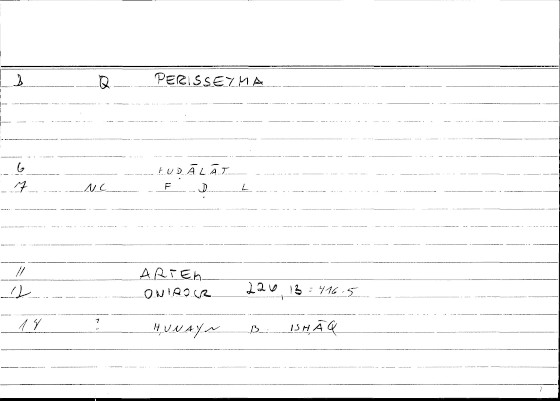 3 Q PERISSEYMA
6 FUḌĀLĀT
7 NC F Ḍ L
11 ARTEM
12 ONIROCR 226, 13 = 416.5
14 ? ḤUNAYN B. ISḤĀQ